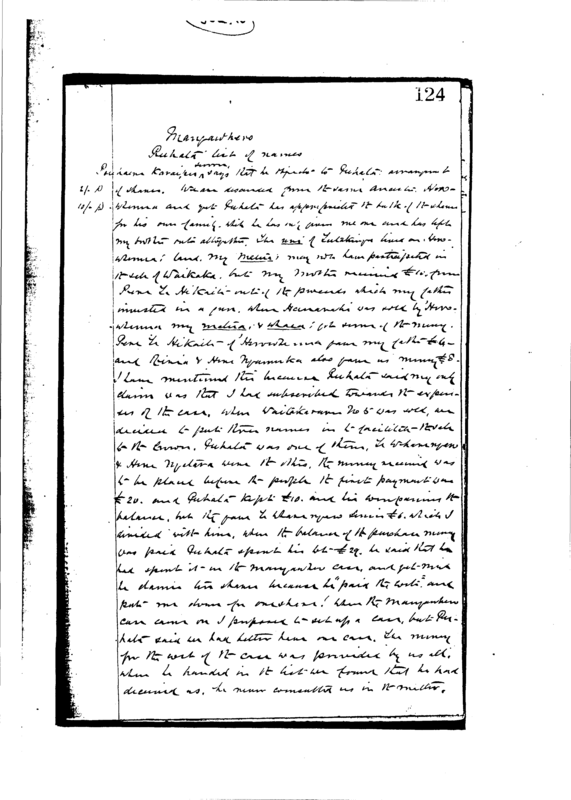 124
Mangawhero
Ruhata list of names
sworn
says that he objects to Ruhata arrangement
2/- A of shares. We are descended from the same ancestor. Horo-
10/- A whenua and yet Ruhata has appropriated the bulk of the shares
for his own family. while he has only given me one and has left
my brother out altogether. The uri of lived on Horo-
whenua's land. my matua may not have participated in
the sale of Waikaka. but my mother received £10. from
Rene Te Hikaiti out of the proceeds which my father
invested in a gun. when was sold by Horo-
whenua my matua & whaea got some of the money.
Rene Te Hikaiti of Horowhenua gave my father £4
and & Hine also gave us money £8.
I have mentioned this because Ruhata said my only
claim was that I had subscribed towards the expen-
ses of the case, when No 5 was sold, we
decided to put three names in to facilitate the sale
to the Crown. Ruhata was one of them,
& Hine were the others, the money received was
to be placed before the people the first payment was
£20. and Ruhata kept £10. and his companions the
balance, but they gave £6. which I
divided with him, when the balance of the purchase money
was paid Ruhata spent his lot £29. he said that he
had spent it in the Mangawhero case, and yet
he claims two shares because he "paid the costs", and
puts me down for one share! When the Mangawhero
case came on I proposed to set up a case, but Ru-
hata said we had better have one case. The money
for the cost of the case was provided by us all,
when he handed in the list we found that he had
deceived us. he never consulted us in the matter.